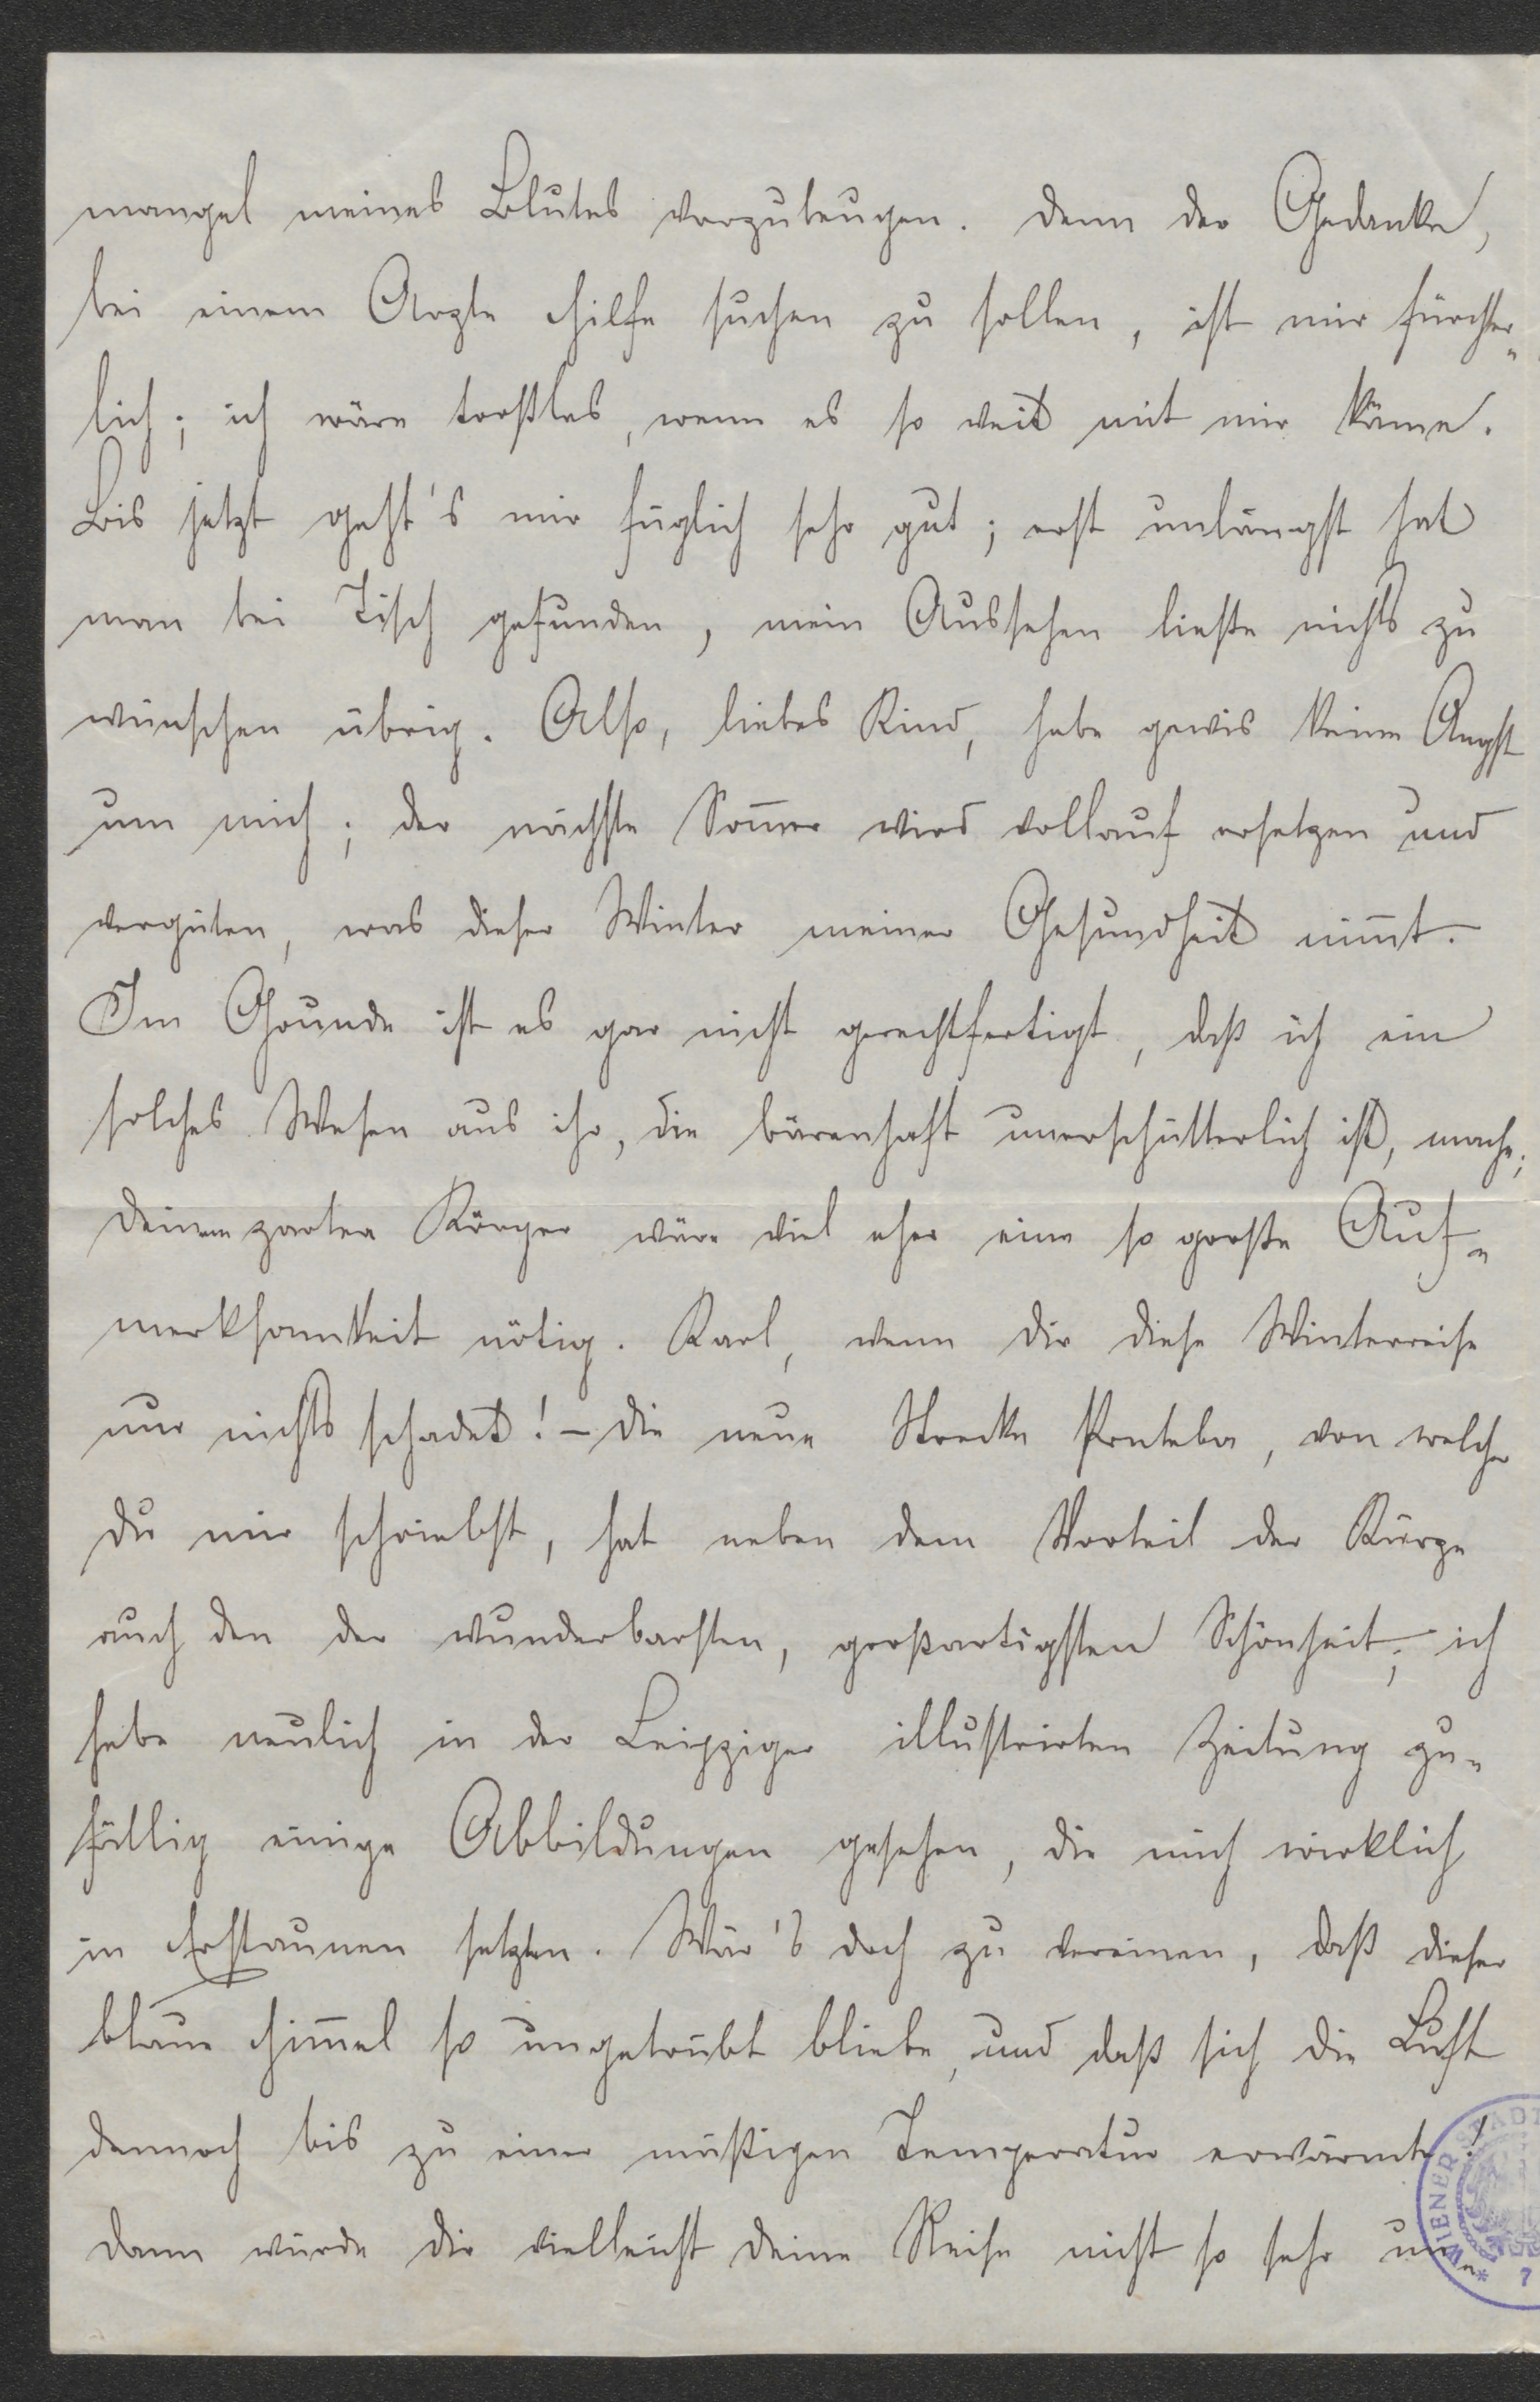 mangel meines Blutes vorzubeugen. Denn der Gedanke,
bei einem Arzte Hilfe suchen zu sollen, ist mir fürchter„
lich; ich wäre trostlos, wenn es so weit mit mir käme.
Bis jetzt geht's mir füglich sehr gut; erst unlängst hat
man bei Tisch gefunden, mein Aussehen ließe nichts zu
wünschen übrig. Also, liebes Kind, habe gewis keine Angst
um mich; der nächste Som̄er wird vollauf ersetzen und
vergüten, was dieser Winter meiner Gesundheit nim̄t.
Im Grunde ist es gar nicht gerechtfertigt, daß ich ein
solches Wesen aus ihr, die bärenhaft unerschütterlich ist, mache;
deinem zarten Körper wäre viel eher eine so große Auf„
merksamkeit nötig. Karl, wenn dir diese Winterreise
nur nichts schadet! – Die neue Strecke Ponteba, von welcher
du mir schriebst, hat neben dem Vorteil der Kürze
auch den der wunderbarsten, großartigsten Schönheit; ich
habe neulich in der Leipziger illustrirten Zeitung zu„
fällig einige Abbildungen gesehen, die mich wirklich
in Erstaunen setzten. Wär's doch zu vereinen, daß dieser
blaue Him̄el so ungetrübt bliebe, und daß sich die Luft
dennoch bis zu einer mäßigen Temperatur erwärmte!
Dann würde dir vielleicht deine Reise nicht so sehr un„
WIENER STADT
* 7